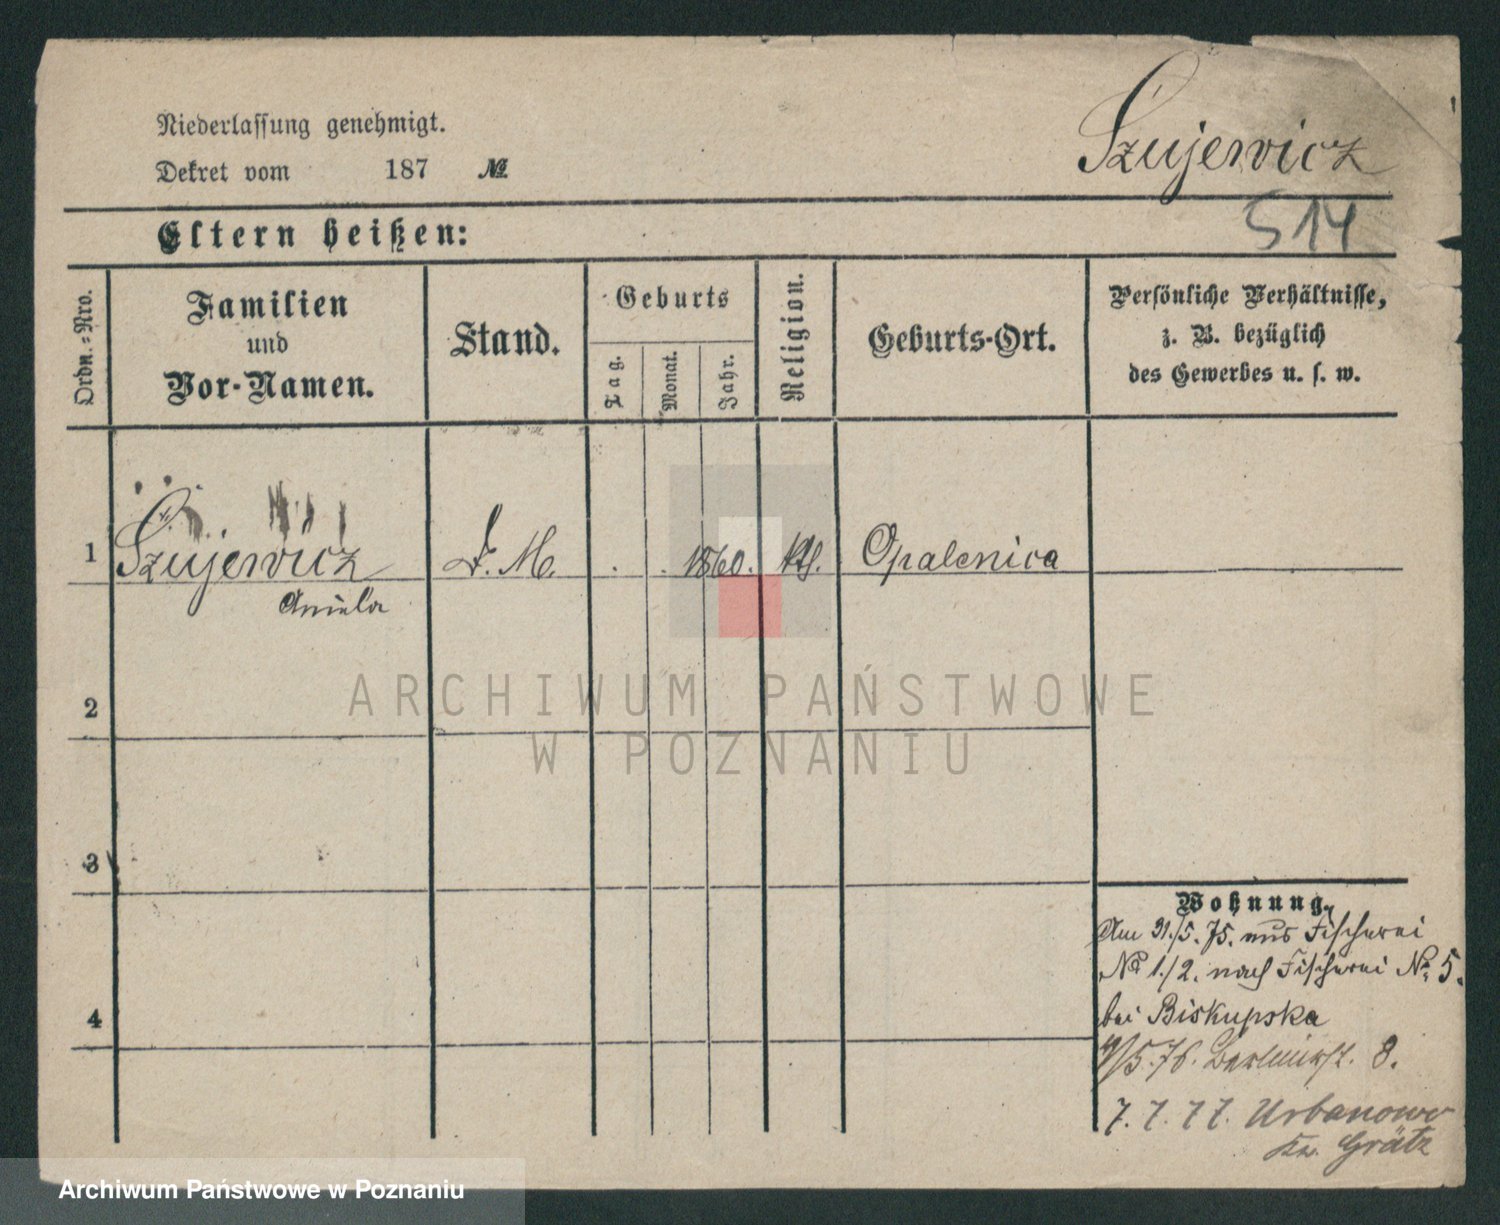 Niederlassung genehmigt.
Dekret vom 187 №
Szujewicz
514
Eltern heißen:
Ordn.=Nro.
Familien
und
Vor-Namen.
Stand.
Geburts
Tag.
Monat.
Jahr.
Religion.
Geburts-Ort.
Persönliche Verhältnisse,
z. B. bezüglich
des Gewerbes u. s. w.
1 Szujewicz D. M. 1860. kth. Opalenica
Aniela
2
3
4
Wohnung.
Am 31./5. 75. aus Fischerei
No 1./2. nach Fischerei No. 5.
bei Biskupska
/5. 76. 8.
7. 7. 77. Urbanowo
Kr. Grätz
ARCHIWUM PAŃSTWOWE
W POZNANIU
Archiwum Państwowe w Poznaniu